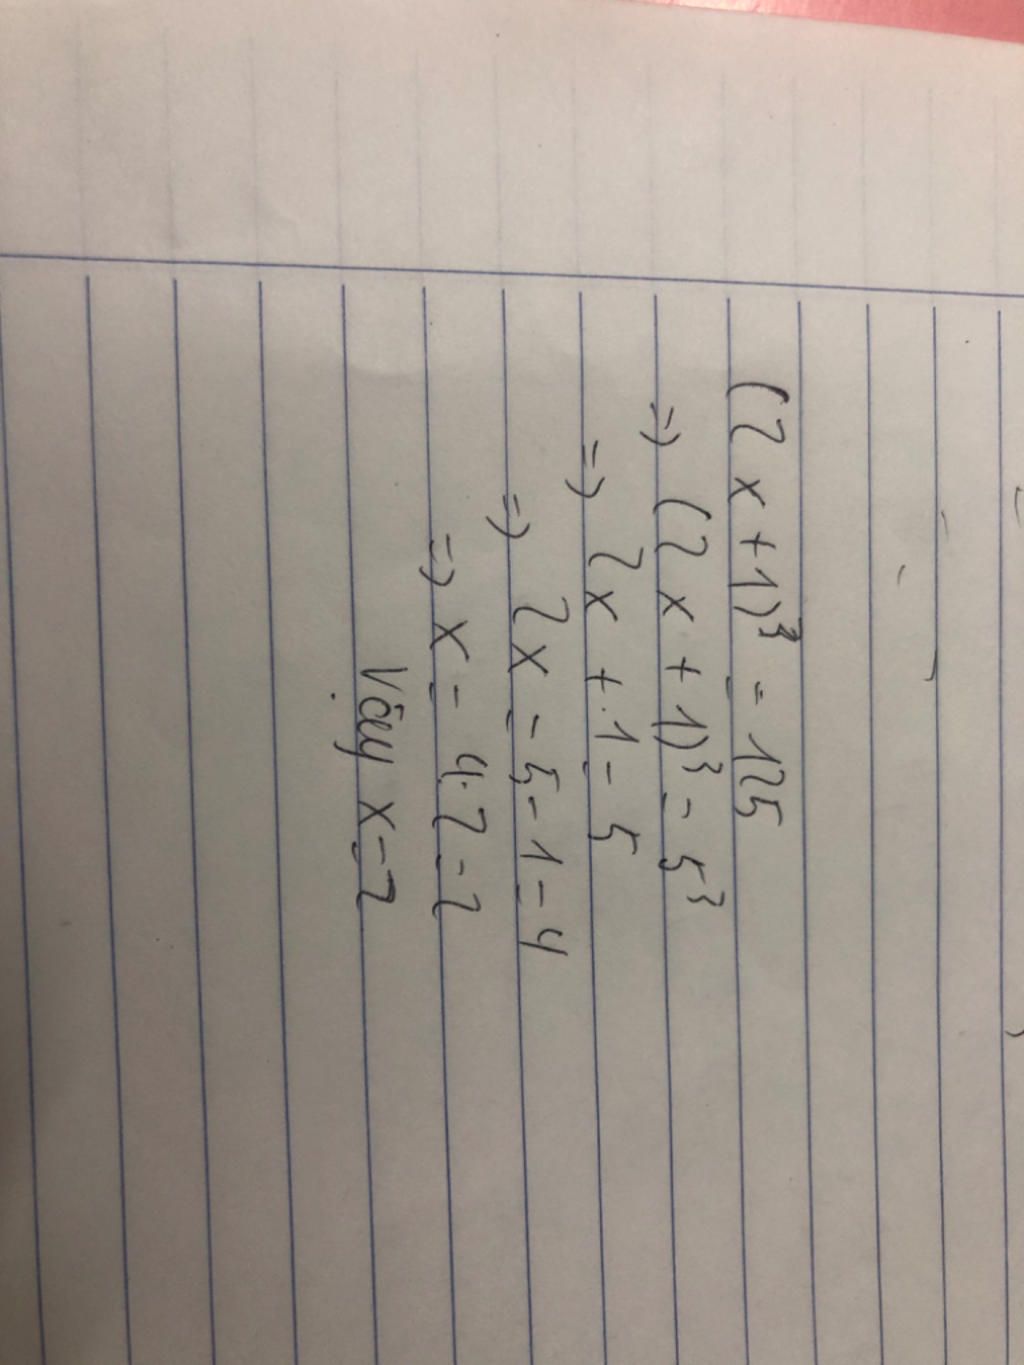 (2x+1)³ = 125
=> (2x+1)³ = 5³
=> 2x+1 = 5
=> 2x = 5-1 = 4
=> x = 4:2 = 2
Vậy x = 2